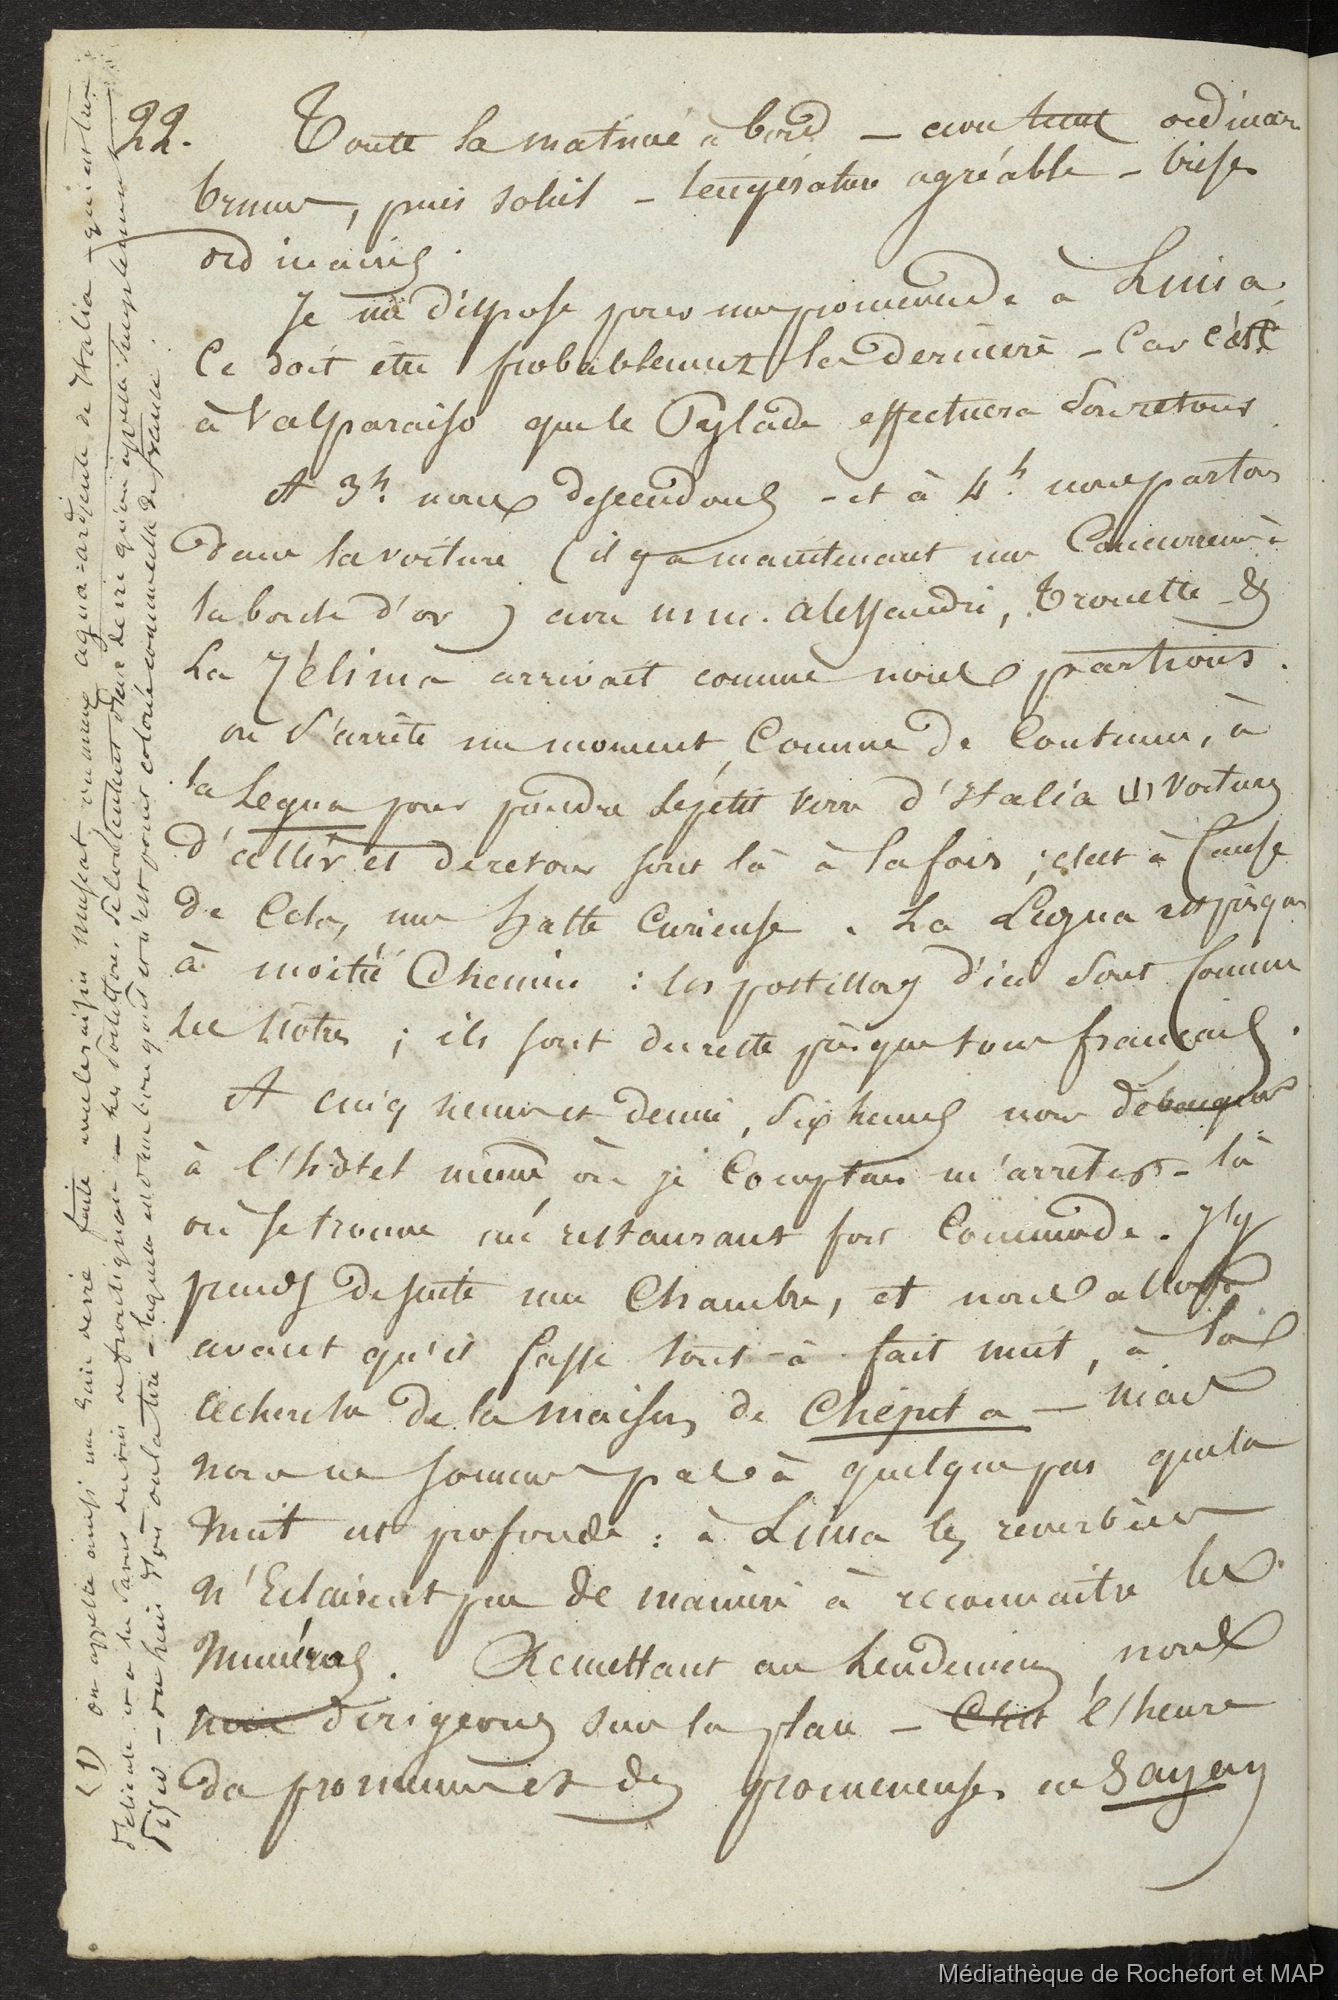 22. Toute la matinée à bord – avec temps ordinaire
brume, puis soleil – température agréable – brises
ordinaires.
Je me dispose pour une promenade à Lima.
Ce doit être probablement la dernière – car c'est
à Valparaiso que le Pylade effectuera son retour
A 3h. nous descendons – et à 4h. nous partons
dans la voiture (il y a maintenant une concurrence à
la boule d'or) avec mm. Alessandri, Trouette &
La Zélima arrivait comme nous partions.
on s'arrête un moment, comme de coutume, à
la Legua pour prendre le petit verre d'Italia (1) voitures
d'aller et de retour sont là à la fois ; c'est à cause
de cela, une halte curieuse. La Legua est presque
à moitié chemin : les postillons d'ici sont comme
les nôtres ; ils sont du reste presque tous français.
A cinq heures et demi, six heures nous débarquons
à l'hôtel même où je comptais m'arrêter – là
où se trouve un restaurant fort commode. J'y
prends de suite une chambre, et nous allons
avant qu'il fasse tout-à-fait nuit, à la
recherche de la maison de Chépita – mais
nous ne sommes pas à quelques pas que la
nuit est profonde : à Lima les réverbères
n'éclairent pas de manière à reconnaître les
numéros. Remettant au lendemain, nous
nous dirigeons sur la place – C'est l'heure
des promeneurs et des promeneuses en Saya
(1) on appelle ainsi une eau de vie faite avec le raisin muscat, on nomme agua-ardiente de Italia – qui est bien
délicate
d'eau de vie qu'on appelle simplement
Pisco – du lieu d'où on la tire – laquelle est d'un bon goût et n'est point colorée comme celle de france.